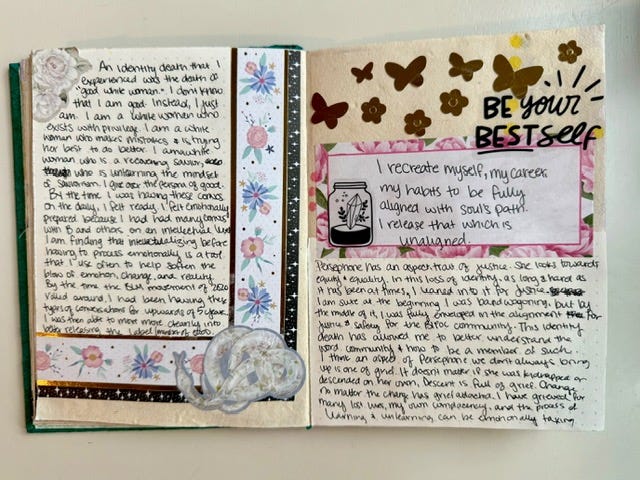 An Identity death that I
experienced was the death of
"good white woman." I don't know
that I am good. Instead, I just
am. I am a white women who
exists with privilege. I am a white
woman who makes mistakes & is trying
her best to do better. I am a white
woman who is a recovering savior,
who is unlearning the mindset
of saviorism. I give over the persona of good.
By the time I was having these convos
on the daily, I felt ready. I felt emotionally
prepared because I had had many convos
with B and others on an intellectual level
I am finding that intellectualizing before
having to process emotionally is a tool
that I use often to help soften the
blow of emotion, change, and reality.
By the time the BLM movement of 2020
rolled around, I had been having these
types of conversations for upwards of 5 years.
I was then able to more cleanly into
better releasing the label
BE your
BEST self
I recreate myself, my career,
my habits to be fully
aligned with soul's path.
I release that which is
unaligned.
Persephone has an aspect/trait of justice. She looks towards
equity & equality. In this loss of identity, as long & hard as
it has been at times, I leaned into it for justice.
I am sure at the beginning I was bandwagoning, but by
the middle of it, I was fully enveloped on the alignment for
justice & safety for the BIPOC community. This identity
death has allowed me to better understand the
word community & how to be a member of such.
I think an aspect of Persephone we don't always bring
up is one of grief. It doesn't matter if she was kidnapped or
descended on her own, Descent is full of grief. Change,
no matter the change has grief attached. I have grieved for
many lost, my own complacency, and the process of
learning & unlearning can be emotionally taxing